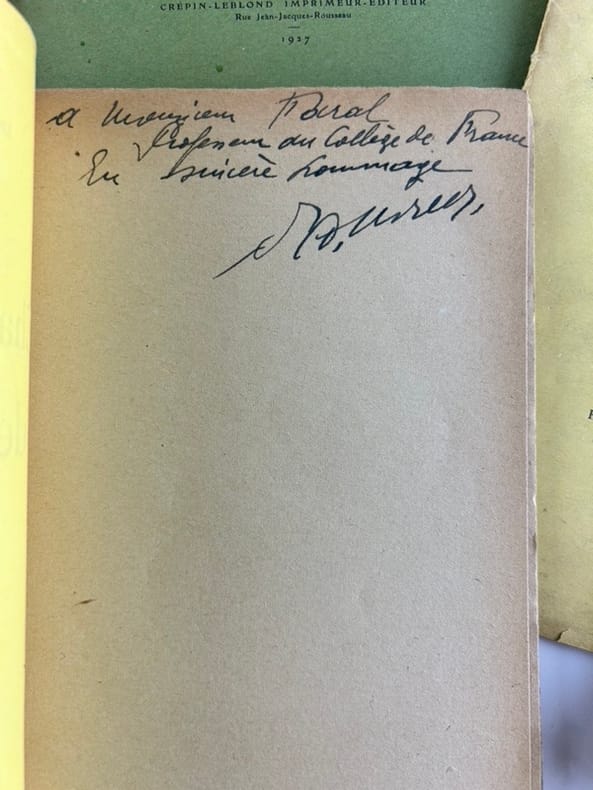 CRÉPIN-LEBLOND IMPRIMEUR-EDITEUR
Rue Jean-Jacques-Rousseau
1927
a Monsieur Baral
Professeur au Collège de France
En sincère hommage